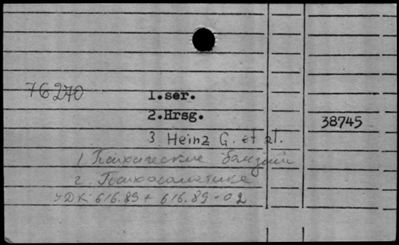 76270
1.ser.
2.Hrsg.
38745
3 Heinz G. et al.
1. Психические болезни
2. Психосоматика
УДК 616.89 + 616.89-02